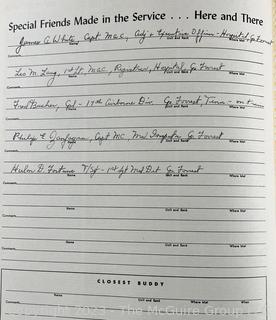 Special Friends Made in the Service . . . Here and There
James A. White, Capt MAC, Adj & Executive Officer - Hospital - Cp Forrest
Name Unit and Rank Where Met
Comments
Leo M. Lang, 1st Lt. MAC, Registrar, Hospital, Cp Forrest
Name Unit and Rank Where Met
Comments
Fred Bucher, Col - 17th Airborne Div Cp Forrest, Tenn - on
Name Unit and Rank Where Met
Comments
Philip E. Capt MC, Cp Forrest
Name Unit and Rank Where Met
Comments
Hulon D. Fortune T/Sgt - 1st Sgt Med Det Cp Forrest
Name Unit and Rank Where Met
Comments
Name Unit and Rank Where Met
Comments
Name Unit and Rank Where Met
Comments
Name Unit and Rank Where Met
Comments
CLOSEST BUDDY
Name Where Met When
Comments
The McGuire Group